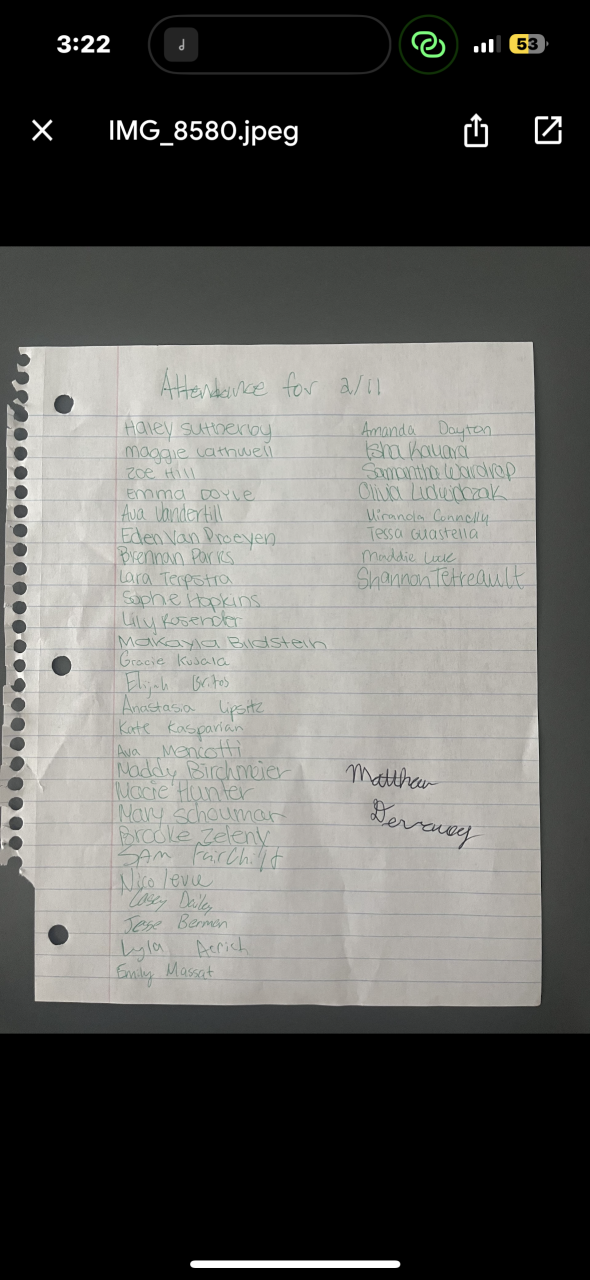 3:22
53
IMG_8580.jpeg
Attendance for 2/11
Haley Sutherby
Maggie Cathwell
Zoe Hill
Emma Doyle
Ava Vandertill
Eden Van Proeyen
Brennan Parks
Lara Terpstra
Sophie Hopkins
Lily
Makayla Budstein
Gracie
Elijah
Anastasia Lipsitz
Kate Kasparian
Ava Mencotti
Maddy Birchmeier
Macie Hunter
Mary Schoumar
Brooke Zeleny
Sam
Nico
Casey Dailey
Jesse Berman
Lyla
Emily Massat
Amanda Dayton
Isha
Samantha Wardrop
Olivia
Miranda Connelly
Tessa Guastella
Maddie
Shannon Tetreault
Matthew